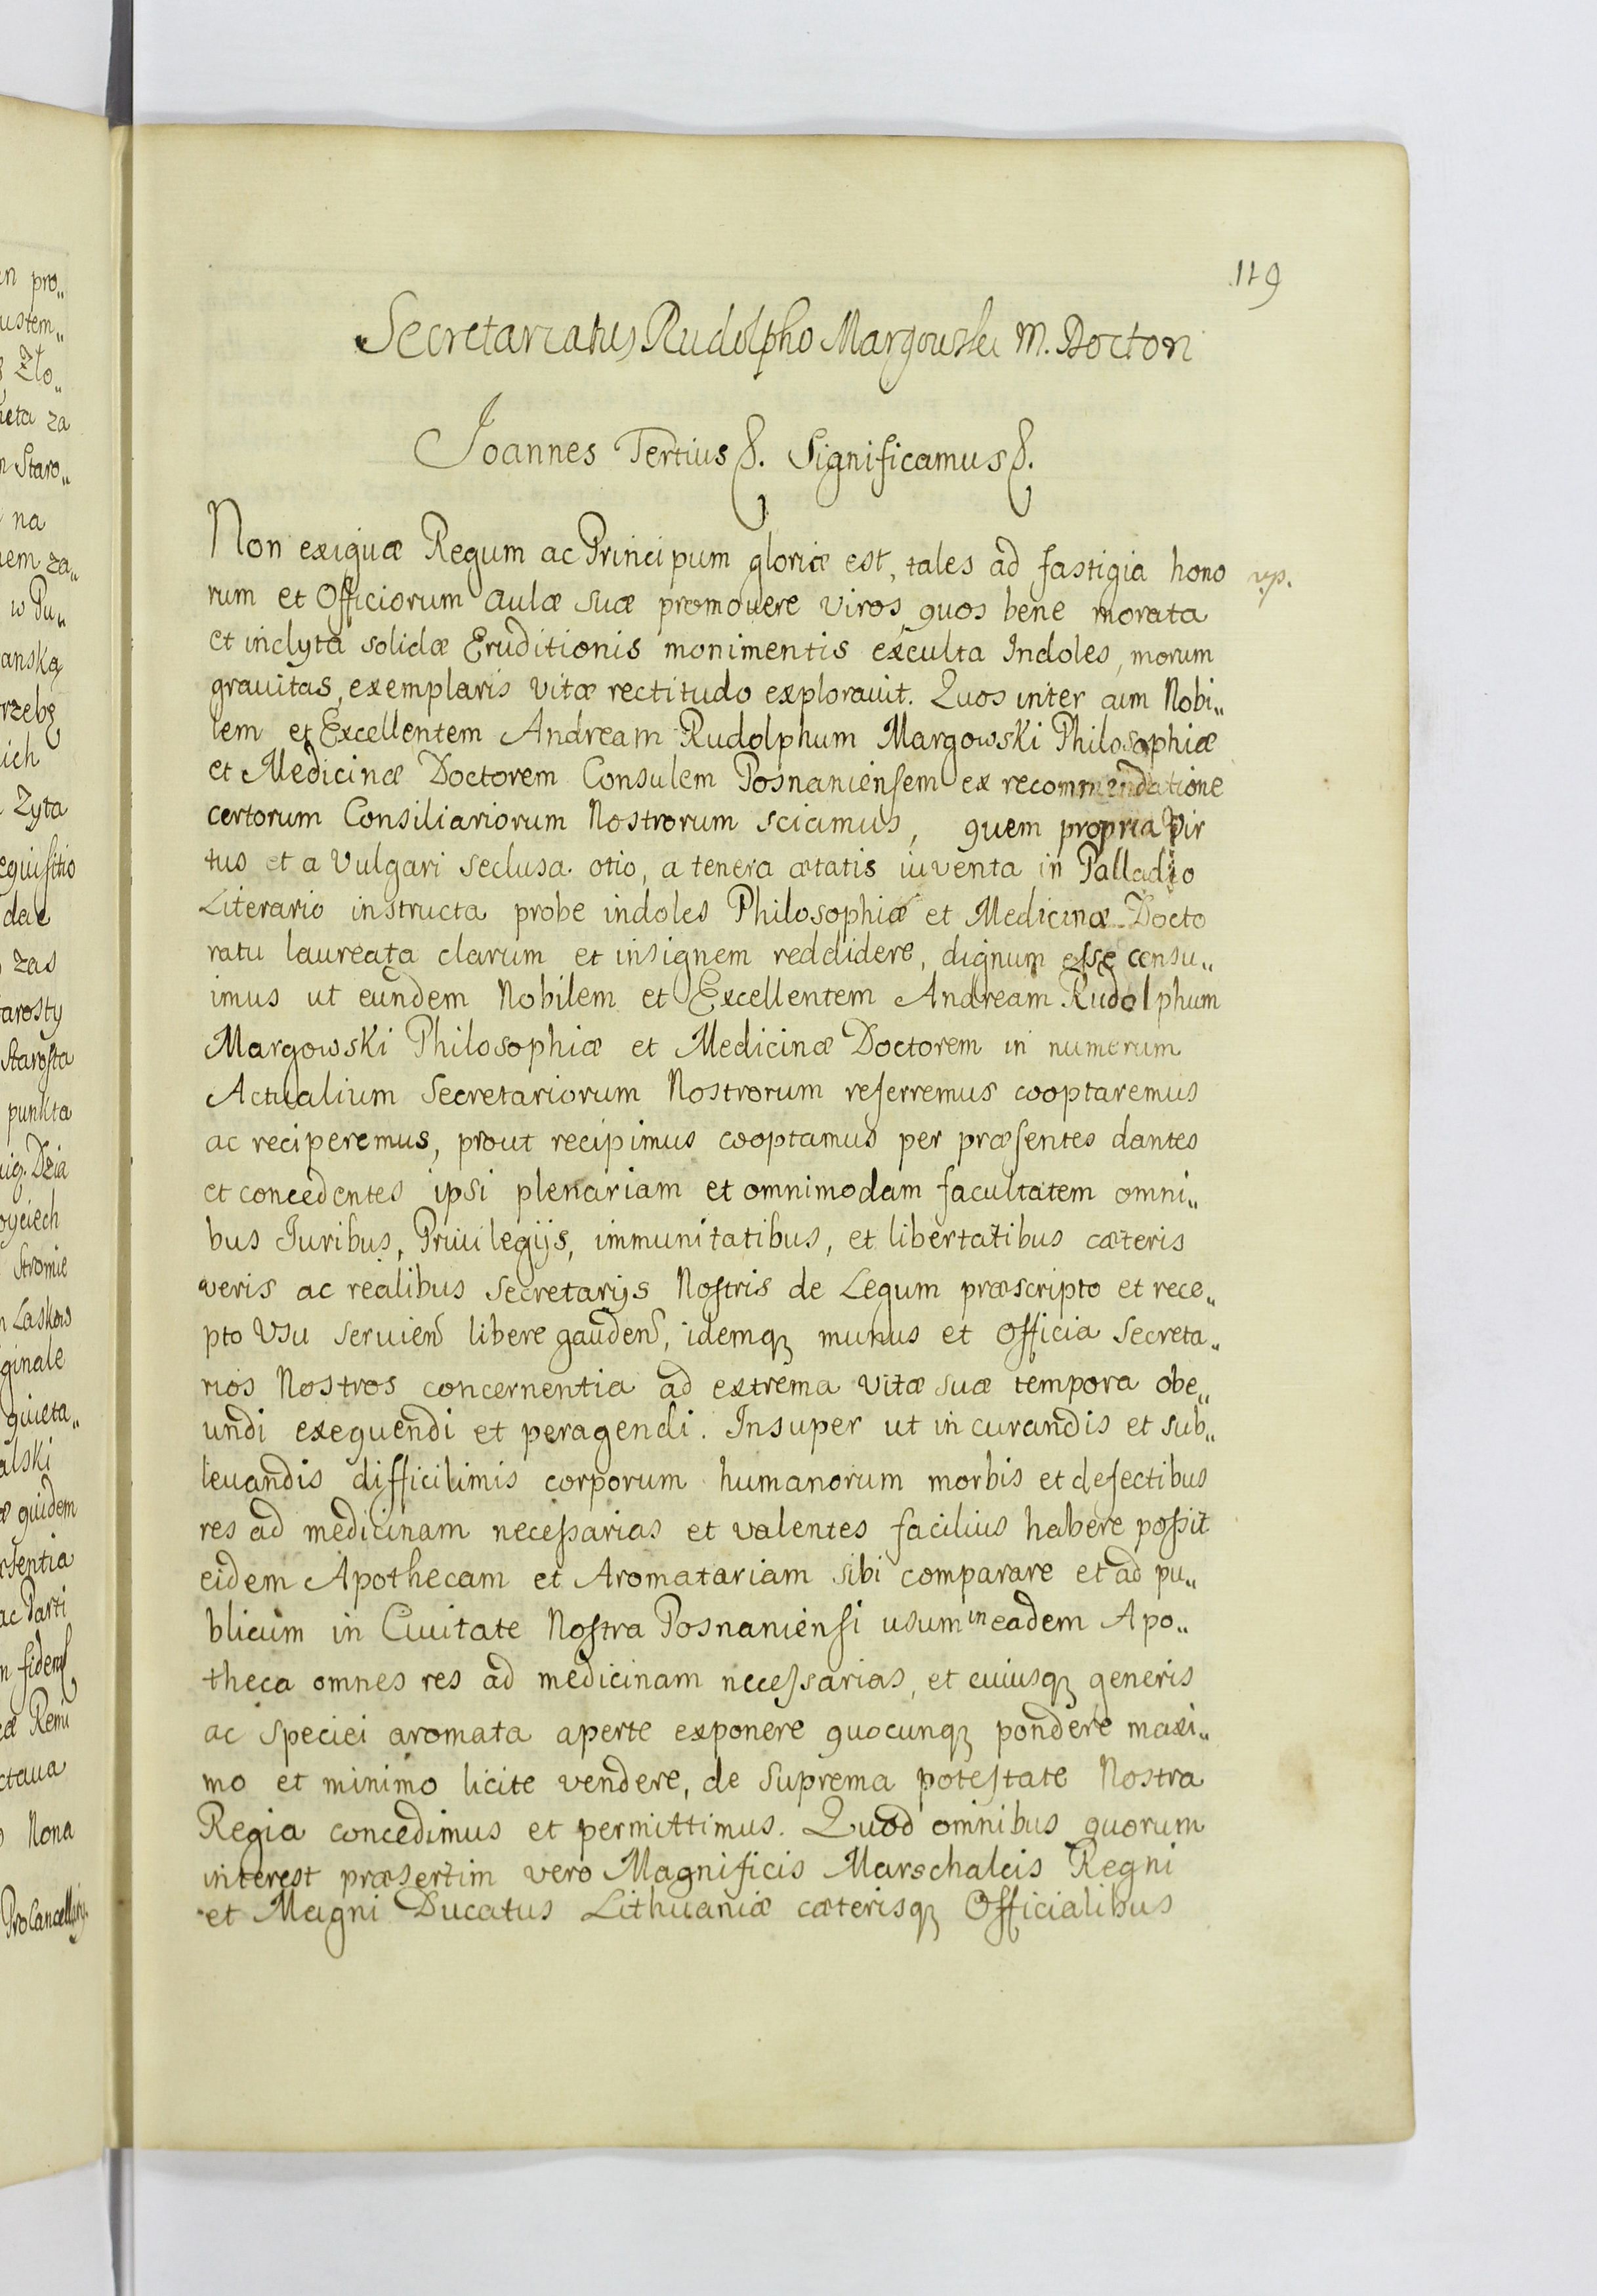 119
Secretariatus Rudolpho Margowski M. Doctori
Joannes Tertius &. Significamus &.
Non exiguæ Regum ac Principum gloriæ est, tales ad fastigia hono
rum et Officiorum aulæ suæ promouere viros, quos bene morata
et inclyta solidæ Eruditionis monimentis exculta Indoles, morum
grauitas, exemplaris vitæ rectitudo explorauit. Quos inter cum Nobi„
lem et Excellentem Andream Rudolphum Margowski Philosophiæ
et Medicinæ Doctorem Consulem Posnaniensem ex recommendatione
certorum Consiliariorum Nostrorum sciamus, quem propria Vir
tus et a Vulgari seclusa otio, a tenera ætatis iuventa in Palladio
Literario instructa probe indoles Philosophiæ et Medicinæ Docto
ratu laureata clarum et insignem reddidere, dignum esse censu„
imus ut eundem Nobilem et Excellentem Andream Rudolphum
Margowski Philosophiæ et Medicinæ Doctorem in numerum
Actualium Secretariorum Nostrorum referremus cooptaremus
ac reciperemus, prout recipimus cooptamus per præsentes dantes
et concedentes ipsi plenariam et omnimodam facultatem omni„
bus Iuribus, Priuilegijs, immunitatibus, et libertatibus cæteris
veris ac realibus Secretarijs Nostris de Legum præscripto et rece„
pto Vsu seruien libere gauden, idemq munus et Officia Secreta„
rios Nostros concernentia ad extrema vitæ suæ tempora obe„
undi exequendi et peragendi. Insuper ut in curandis et sub„
leuandis difficilimis corporum humanorum morbis et defectibus
res ad medicinam necessarias et valentes facilius habere possit
eidem Apothecam et Aromatariam sibi comparare et ad pu„
blicum in Ciuitate Nostra Posnaniensi usum in eadem Apo„
theca omnes res ad medicinam necessarias, et cuiusq generis
ac speciei aromata aperte exponere quocunq pondere maxi„
mo et minimo licite vendere, de suprema potestate Nostra
Regia concedimus et permittimus. Quod omnibus quorum
interest præsertim vero Magnificis Marschalcis Regni
et Magni Ducatus Lithuaniæ cæterisq Officialibus